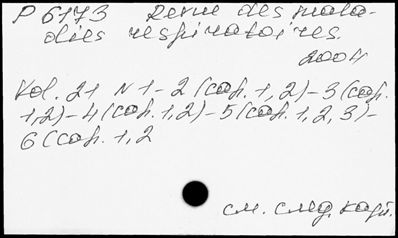 P 6173 Revue des mala-
dies respiratoires.
2004
Vol. 21 N 1-2 (cah. 1, 2) - 3 (cah.
1, 2) - 4 (cah. 1, 2) - 5 (cah. 1, 2, 3) -
6 (cah. 1, 2
см. след. карт.